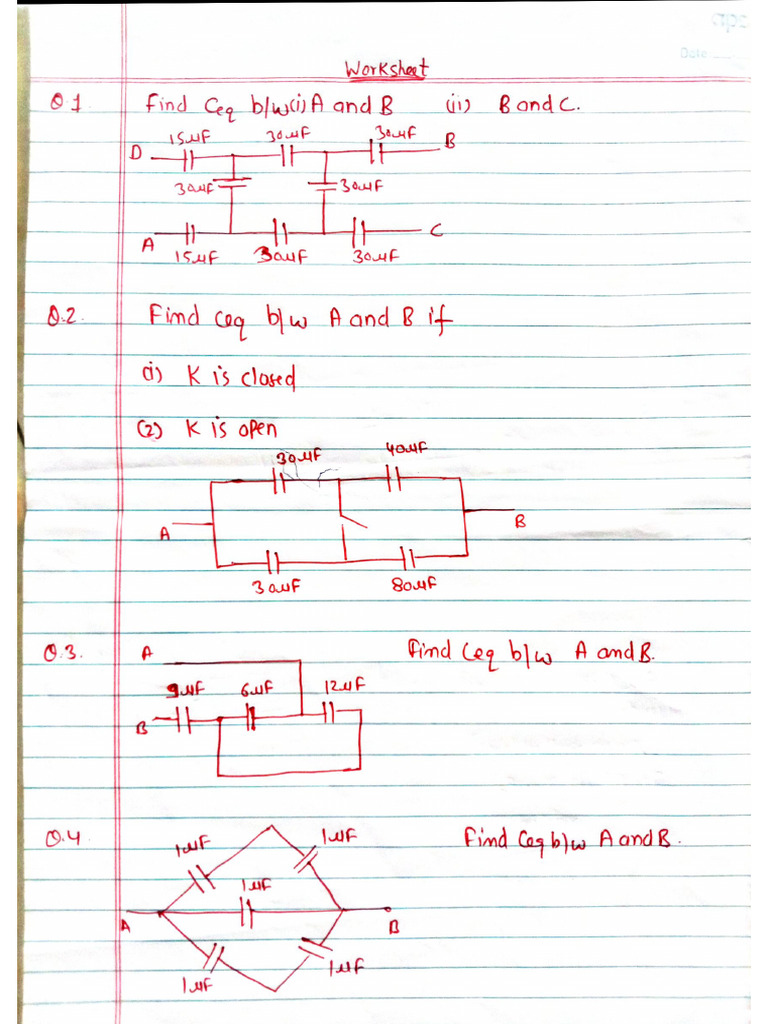 Date
Worksheet
Q.1 Find Ceq b/w (i) A and B (ii) B and C.
15μF 30μF 30μF
D B
30μF 30μF
A C
15μF 30μF 30μF
Q.2 Find Ceq b/w A and B if
(i) K is closed
(2) K is open
30μF 40μF
A B
30μF 80μF
Q.3. A Find Ceq b/w A and B.
9μF 6μF 12μF
B
Q.4 Find Ceq b/w A and B.
1μF 1μF
1μF
A B
1μF 1μF